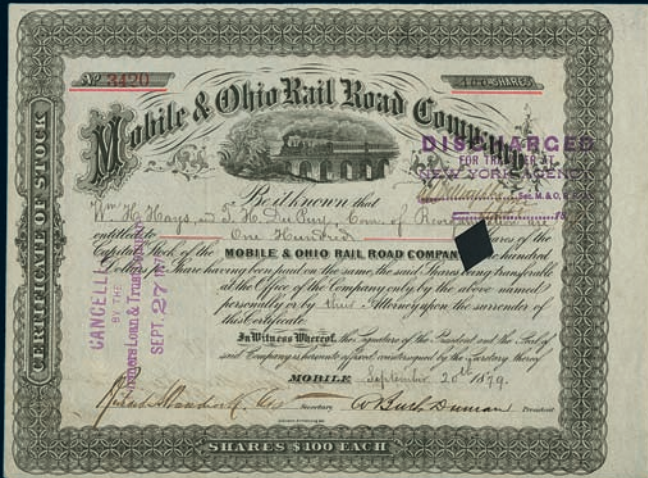 No 3420
100 SHARES
Mobile & Ohio Rail Road Company
DISCHARGED
FOR TRANSFER AT
NEW YORK AGENCY
Sec. M. & O. R.
Be it known that
Wm H. Hays, and T. H. DuPuy, Com. of Reorganization are
entitled to One Hundred Shares of the
Capital Stock of the MOBILE & OHIO RAIL ROAD COMPANY One hundred
Dollars per Share having been paid on the same, the said Shares being transferable
at the Office of the Company only by the above named
personally or by their Attorney upon the surrender of
this Certificate.
In Witness Whereof, the Signature of the President and the Seal of
said Company is hereunto affixed, countersigned by the Secretary thereof
MOBILE September 20th 1879.
Secretary
W Butler Duncan President
SHARES $100 EACH
CERTIFICATE OF STOCK
CANCELLED
BY THE
Farmers Loan & Trust
SEPT. 27 187